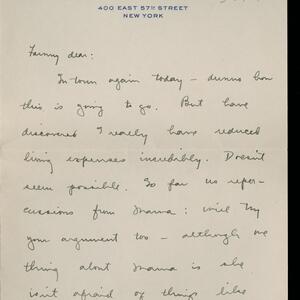 400 EAST 57TH STREET
NEW YORK
Fanny dear:
In town again today - dunno how
this is going to go. But have
discovered I really have reduced
living expenses incredibly. Doesn't
seem possible. So far no reper-
cussions from Mama: will try
your argument too - although one
thing about Mama is she
isn't afraid of things like